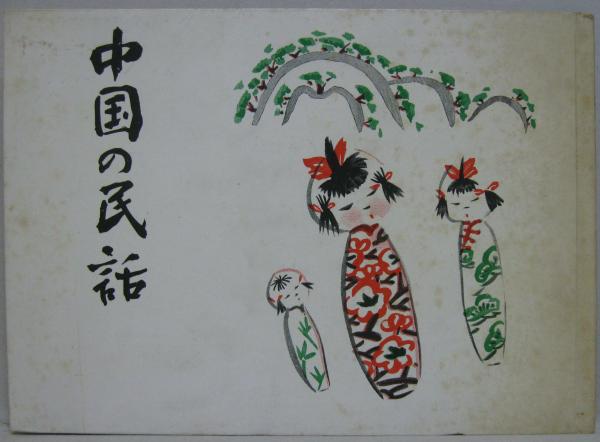 中国の民話